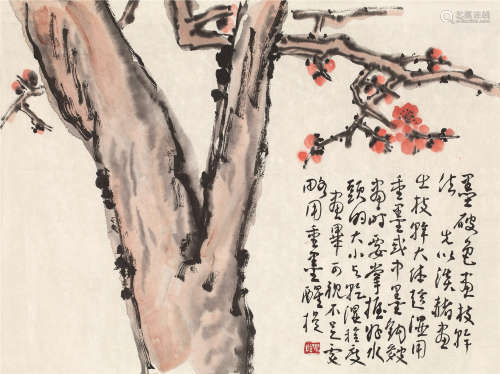 墨破色画枝幹
法 先以淡赭画
出枝幹大体趁湿用
重墨或中墨钩皴
画时要掌握好水
的大小乾湿程度
画畢可視不足处
略用重墨醒提